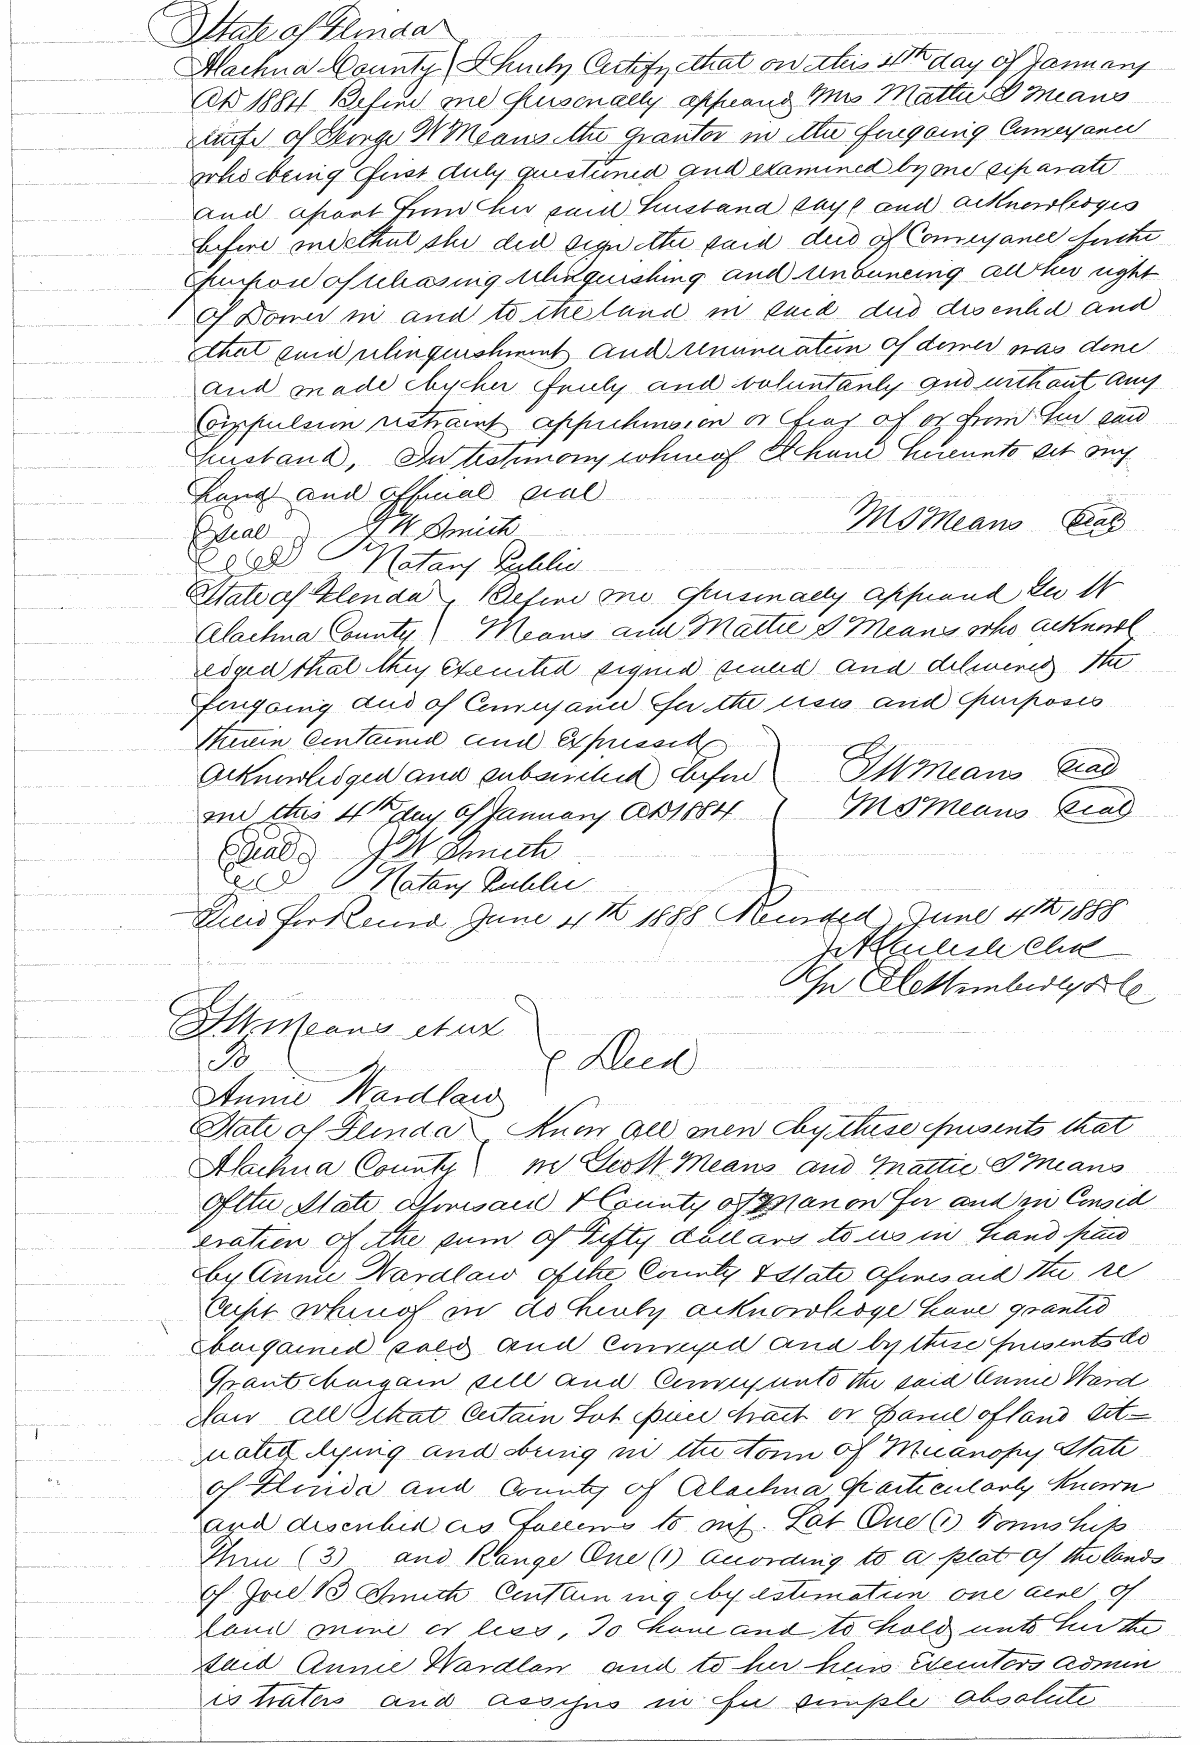 State of Florida
Alachua County I hereby Certify that on this 4th day of January
AD 1884 Before me personally appeared Mrs Mattie S Means
wife of George W Means the grantor in the foregoing Conveyance
who being first duly questioned and examined by me separate
and apart from her said husband says and acknowledges
before me that she did sign the said deed of Conveyance for the
purpose of releasing relinquishing and renouncing all her right
of Dower in and to the land in said deed described and
that said relinquishment and renunciation of dower was done
and made by her freely and voluntarily and without any
Compulsion restraint apprehension or fear of or from her said
husband, In testimony whereof I have hereunto set my
hand and official seal
Seal J W Smith M S Means Seal
Notary Public
State of Florida Before me personally appeared Geo W
Alachua County Means and Mattie S Means who acknowl
edged that they executed signed sealed and delivered the
foregoing deed of Conveyance for the uses and purposes
therein contained and expressed
Acknowledged and subscribed before G W Means Seal
me this 4th day of January AD 1884 M S Means Seal
Seal J W Smith
Notary Public
Filed for Record June 4th 1888 Recorded June 4th 1888
Clerk
Per
G W Means et ux
To Deed
Annie Wardlaw
State of Florida Know all men by these presents that
Alachua County we Geo W. Means and Mattie S Means
of the State aforesaid & County of Marion for and in Consid
eration of the sum of Fifty dollars to us in hand paid
by Annie Wardlaw of the County & State aforesaid the re
ceipt whereof we do hereby acknowledge have granted
bargained sold and conveyed and by these presents do
Grant bargain sell and Convey unto the said Annie Ward
law all that Certain Lot piece tract or parcel of land sit=
uated lying and being in the town of Micanopy State
of Florida and County of Alachua particularly Known
and described as follows to wit. Lot One (1) Township
Three (3) and Range One (1) according to a plat of the lands
of Joel B Smith Containing by estimation one acre of
land more or less, To have and to hold unto her the
said Annie Wardlaw and to her heirs Executors admin
istrators and assigns in fee simple absolute